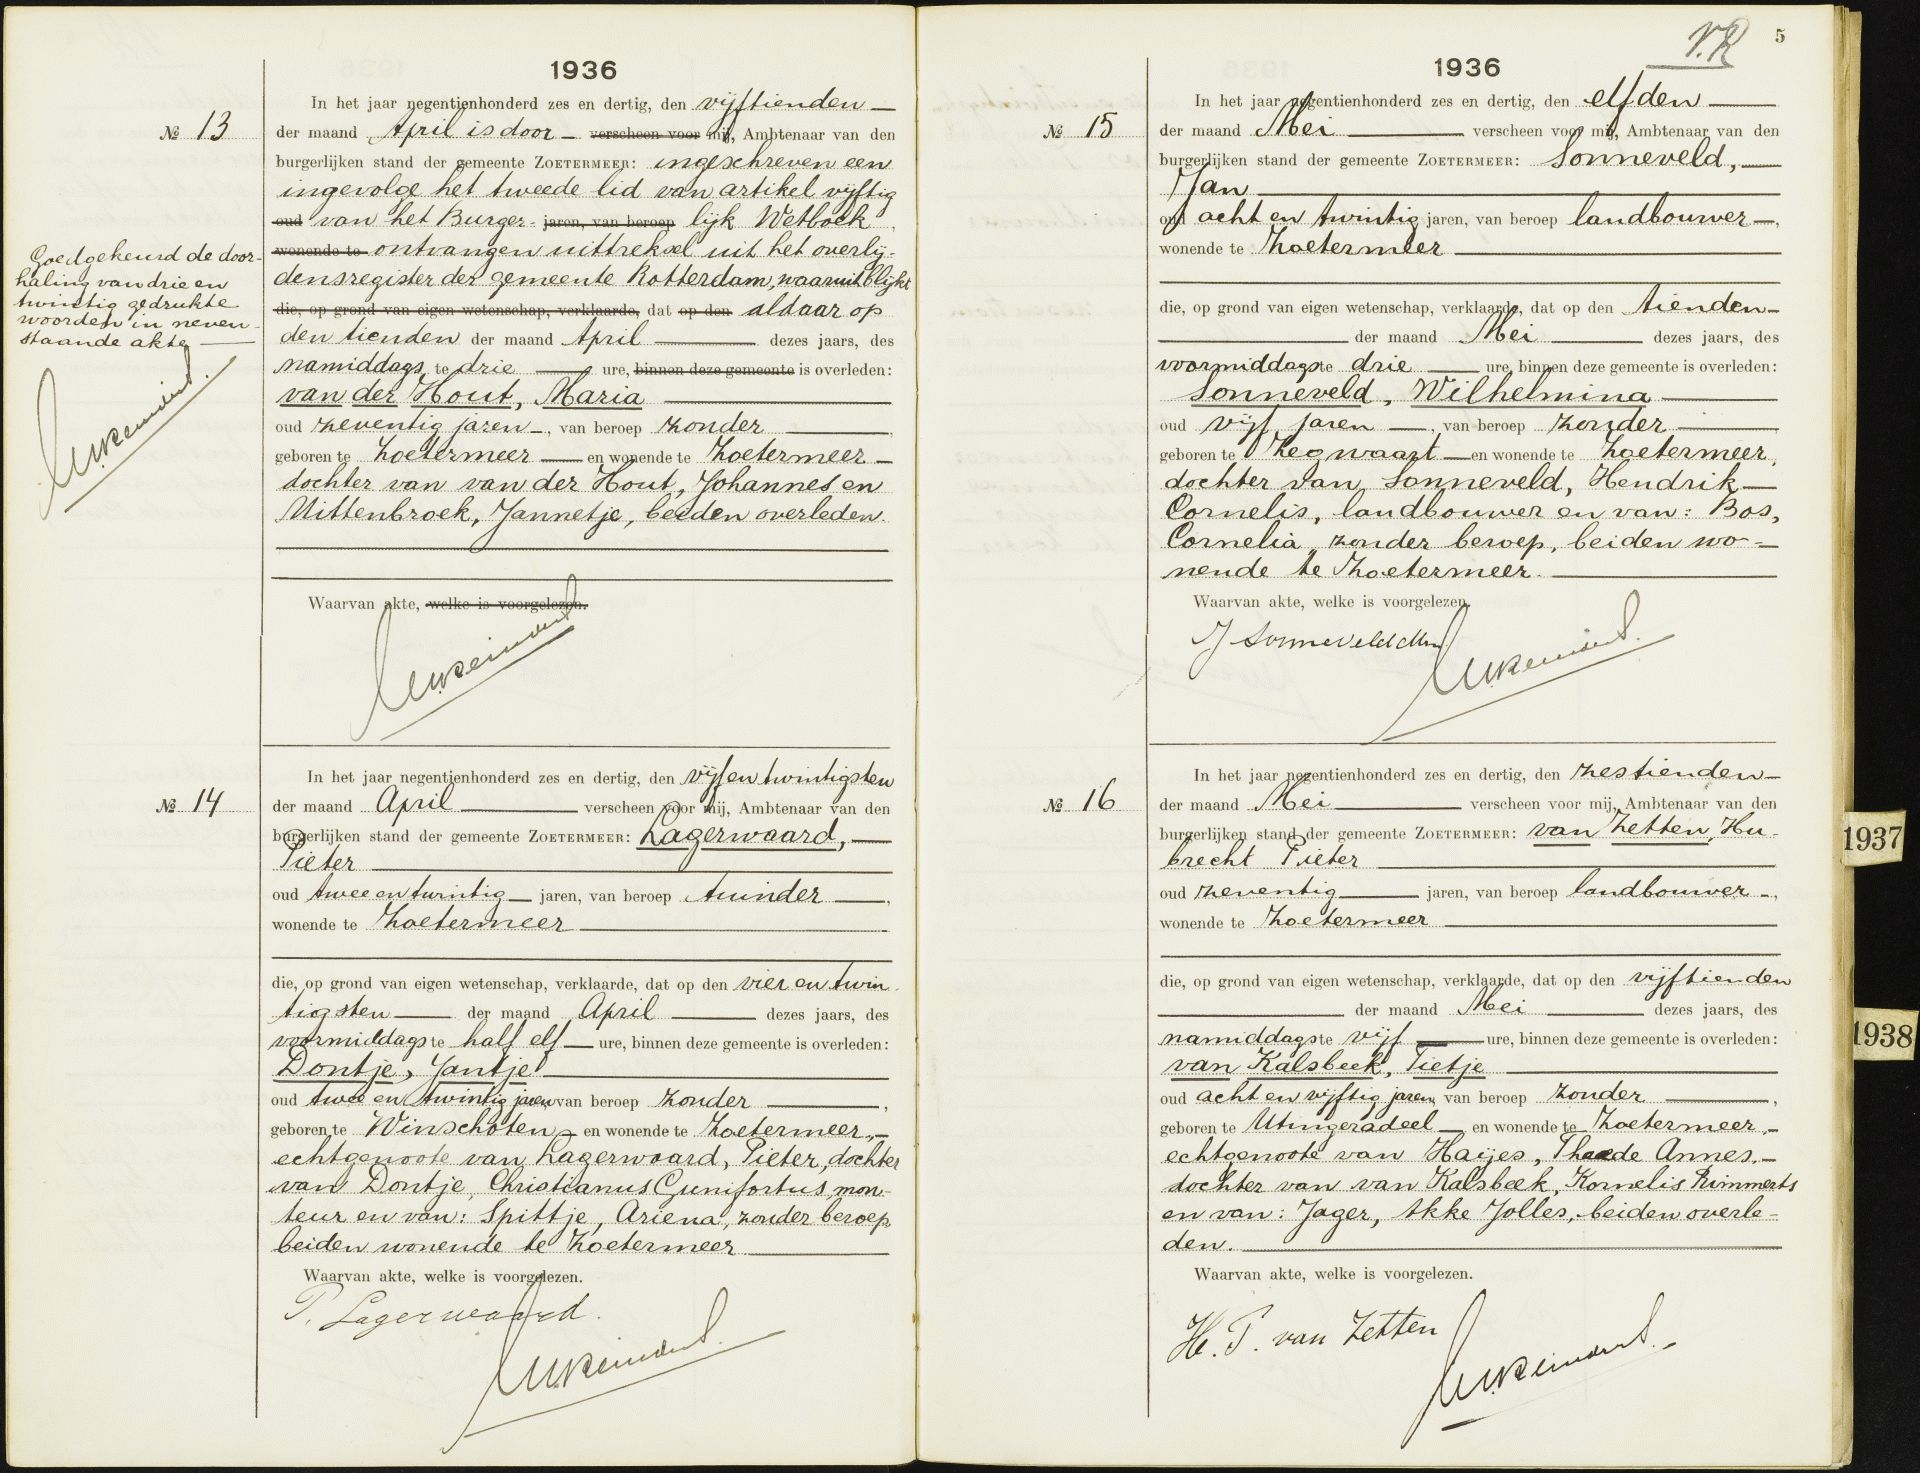 1936
In het jaar negentienhonderd zes en dertig, den vijftienden
№ 13
der maand April is door verscheen voor mij, Ambtenaar van den
burgerlijken stand der gemeente ZOETERMEER: ingeschreven een
ingevolge het tweede lid van artikel vijftig
oud van het Burger- jaren, van beroep lijk Wetboek
wonende te ontvangen uittreksel uit het overlij-
densregister der gemeente Rotterdam, waaruit blijkt
die, op grond van eigen wetenschap, verklaarde, dat op den aldaar op
den tienden der maand April dezes jaars, des
namiddags te drie ure, binnen deze gemeente is overleden:
van der Hout, Maria
oud zeventig jaren, van beroep zonder
geboren te Zoetermeer en wonende te Zoetermeer
dochter van van der Hout, Johannes en
Uittenbroek, Jannetje, beiden overleden.
Waarvan akte, welke is voorgelezen.
Goedgekeurd de door-
haling van drie en
twintig gedrukte
woorden in neven-
staande akte
In het jaar negentienhonderd zes en dertig, den vijf en twintigsten
№ 14
der maand April verscheen voor mij, Ambtenaar van den
burgerlijken stand der gemeente ZOETERMEER: Lagerwaard,
Pieter
oud twee en twintig jaren, van beroep tuinder,
wonende te Zoetermeer
die, op grond van eigen wetenschap, verklaarde, dat op den vier en twin-
tigsten der maand April dezes jaars, des
voormiddags te half elf ure, binnen deze gemeente is overleden:
Dontje, Jantje
oud twee en twintig jaren, van beroep zonder,
geboren te Winschoten en wonende te Zoetermeer,
echtgenoote van Lagerwaard, Pieter, dochter
van Dontje, Christianus Gunifortus, mon-
teur en van: Spittje, Ariena, zonder beroep
beiden wonende te Zoetermeer
Waarvan akte, welke is voorgelezen.
P. Lagerwaard.
V.R
5
1936
In het jaar negentienhonderd zes en dertig, den elfden
№ 15
der maand Mei verscheen voor mij, Ambtenaar van den
burgerlijken stand der gemeente ZOETERMEER: Sonneveld,
Jan
oud acht en twintig jaren, van beroep landbouwer,
wonende te Zoetermeer
die, op grond van eigen wetenschap, verklaarde, dat op den tienden
der maand Mei dezes jaars, des
voormiddags te drie ure, binnen deze gemeente is overleden:
Sonneveld, Wilhelmina
oud vijf jaren, van beroep zonder
geboren te Zegwaart en wonende te Zoetermeer,
dochter van Sonneveld, Hendrik
Cornelis, landbouwer en van: Bos,
Cornelia, zonder beroep, beiden wo-
nende te Zoetermeer.
Waarvan akte, welke is voorgelezen.
J Sonneveld
In het jaar negentienhonderd zes en dertig, den zestienden
№ 16
der maand Mei verscheen voor mij, Ambtenaar van den
burgerlijken stand der gemeente ZOETERMEER: van Zetten, Hu-
brecht Pieter
oud zeventig jaren, van beroep landbouwer,
wonende te Zoetermeer
die, op grond van eigen wetenschap, verklaarde, dat op den vijftienden
der maand Mei dezes jaars, des
namiddags te vijf ure, binnen deze gemeente is overleden:
van Kalsbeek, Tietje
oud acht en vijftig jaren, van beroep zonder,
geboren te Utingeradeel en wonende te Zoetermeer,
echtgenoote van Haijes, Annes,
dochter van van Kalsbeek, Kornelis Rimmerts
en van: Jager, Akke Jolles, beiden overle-
den.
Waarvan akte, welke is voorgelezen.
H. P. van Zetten
1937
1938